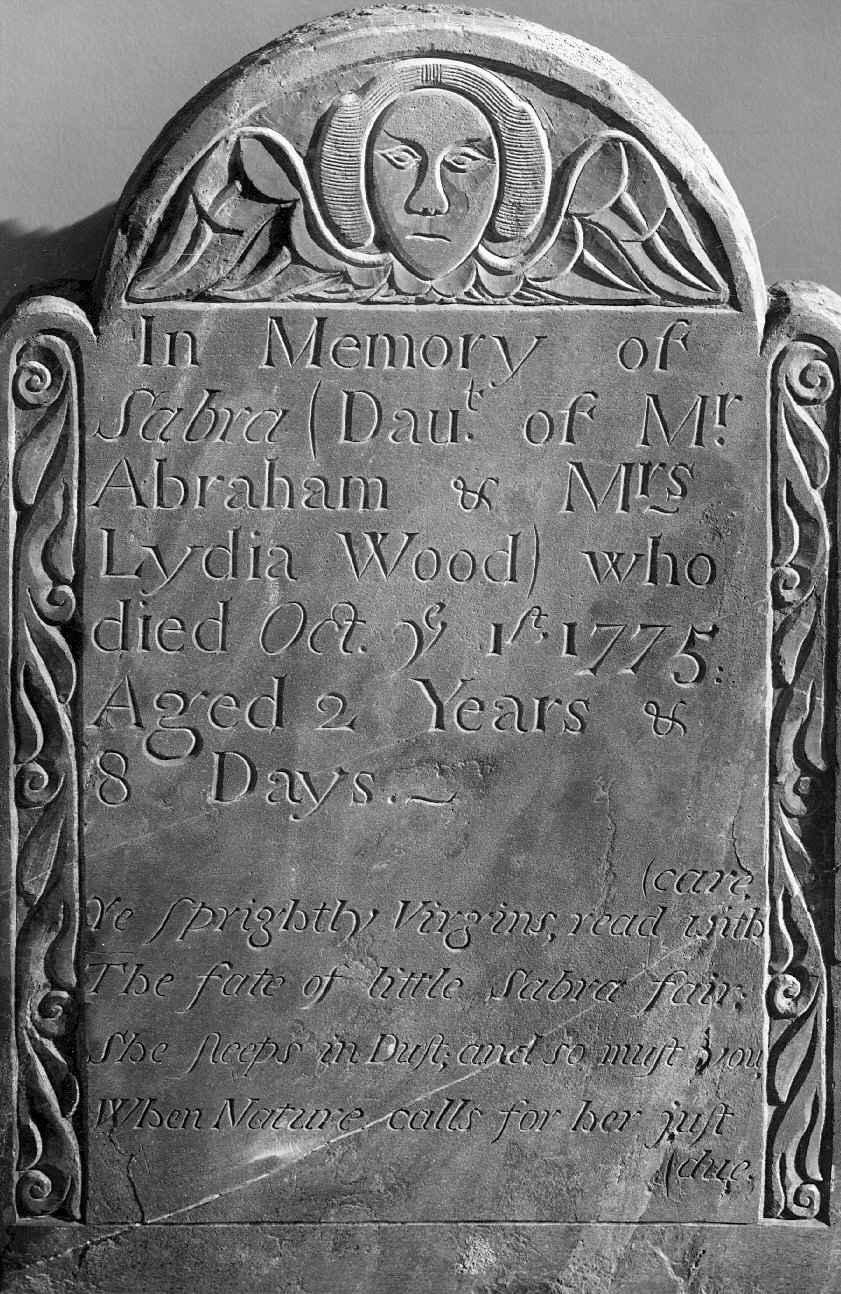 In Memory of
Sabra (Daut. of Mr.
Abraham & Mrs
Lydia Wood) who
died Oct. ye 1st. 1775:
Aged 2 Years &
8 Days.~
(care.
Ye sprightly Virgins, read with
The fate of little Sabra fair.
She ſleeps in Duſt; and so muſt you
When Nature calls for her juſt
(due.